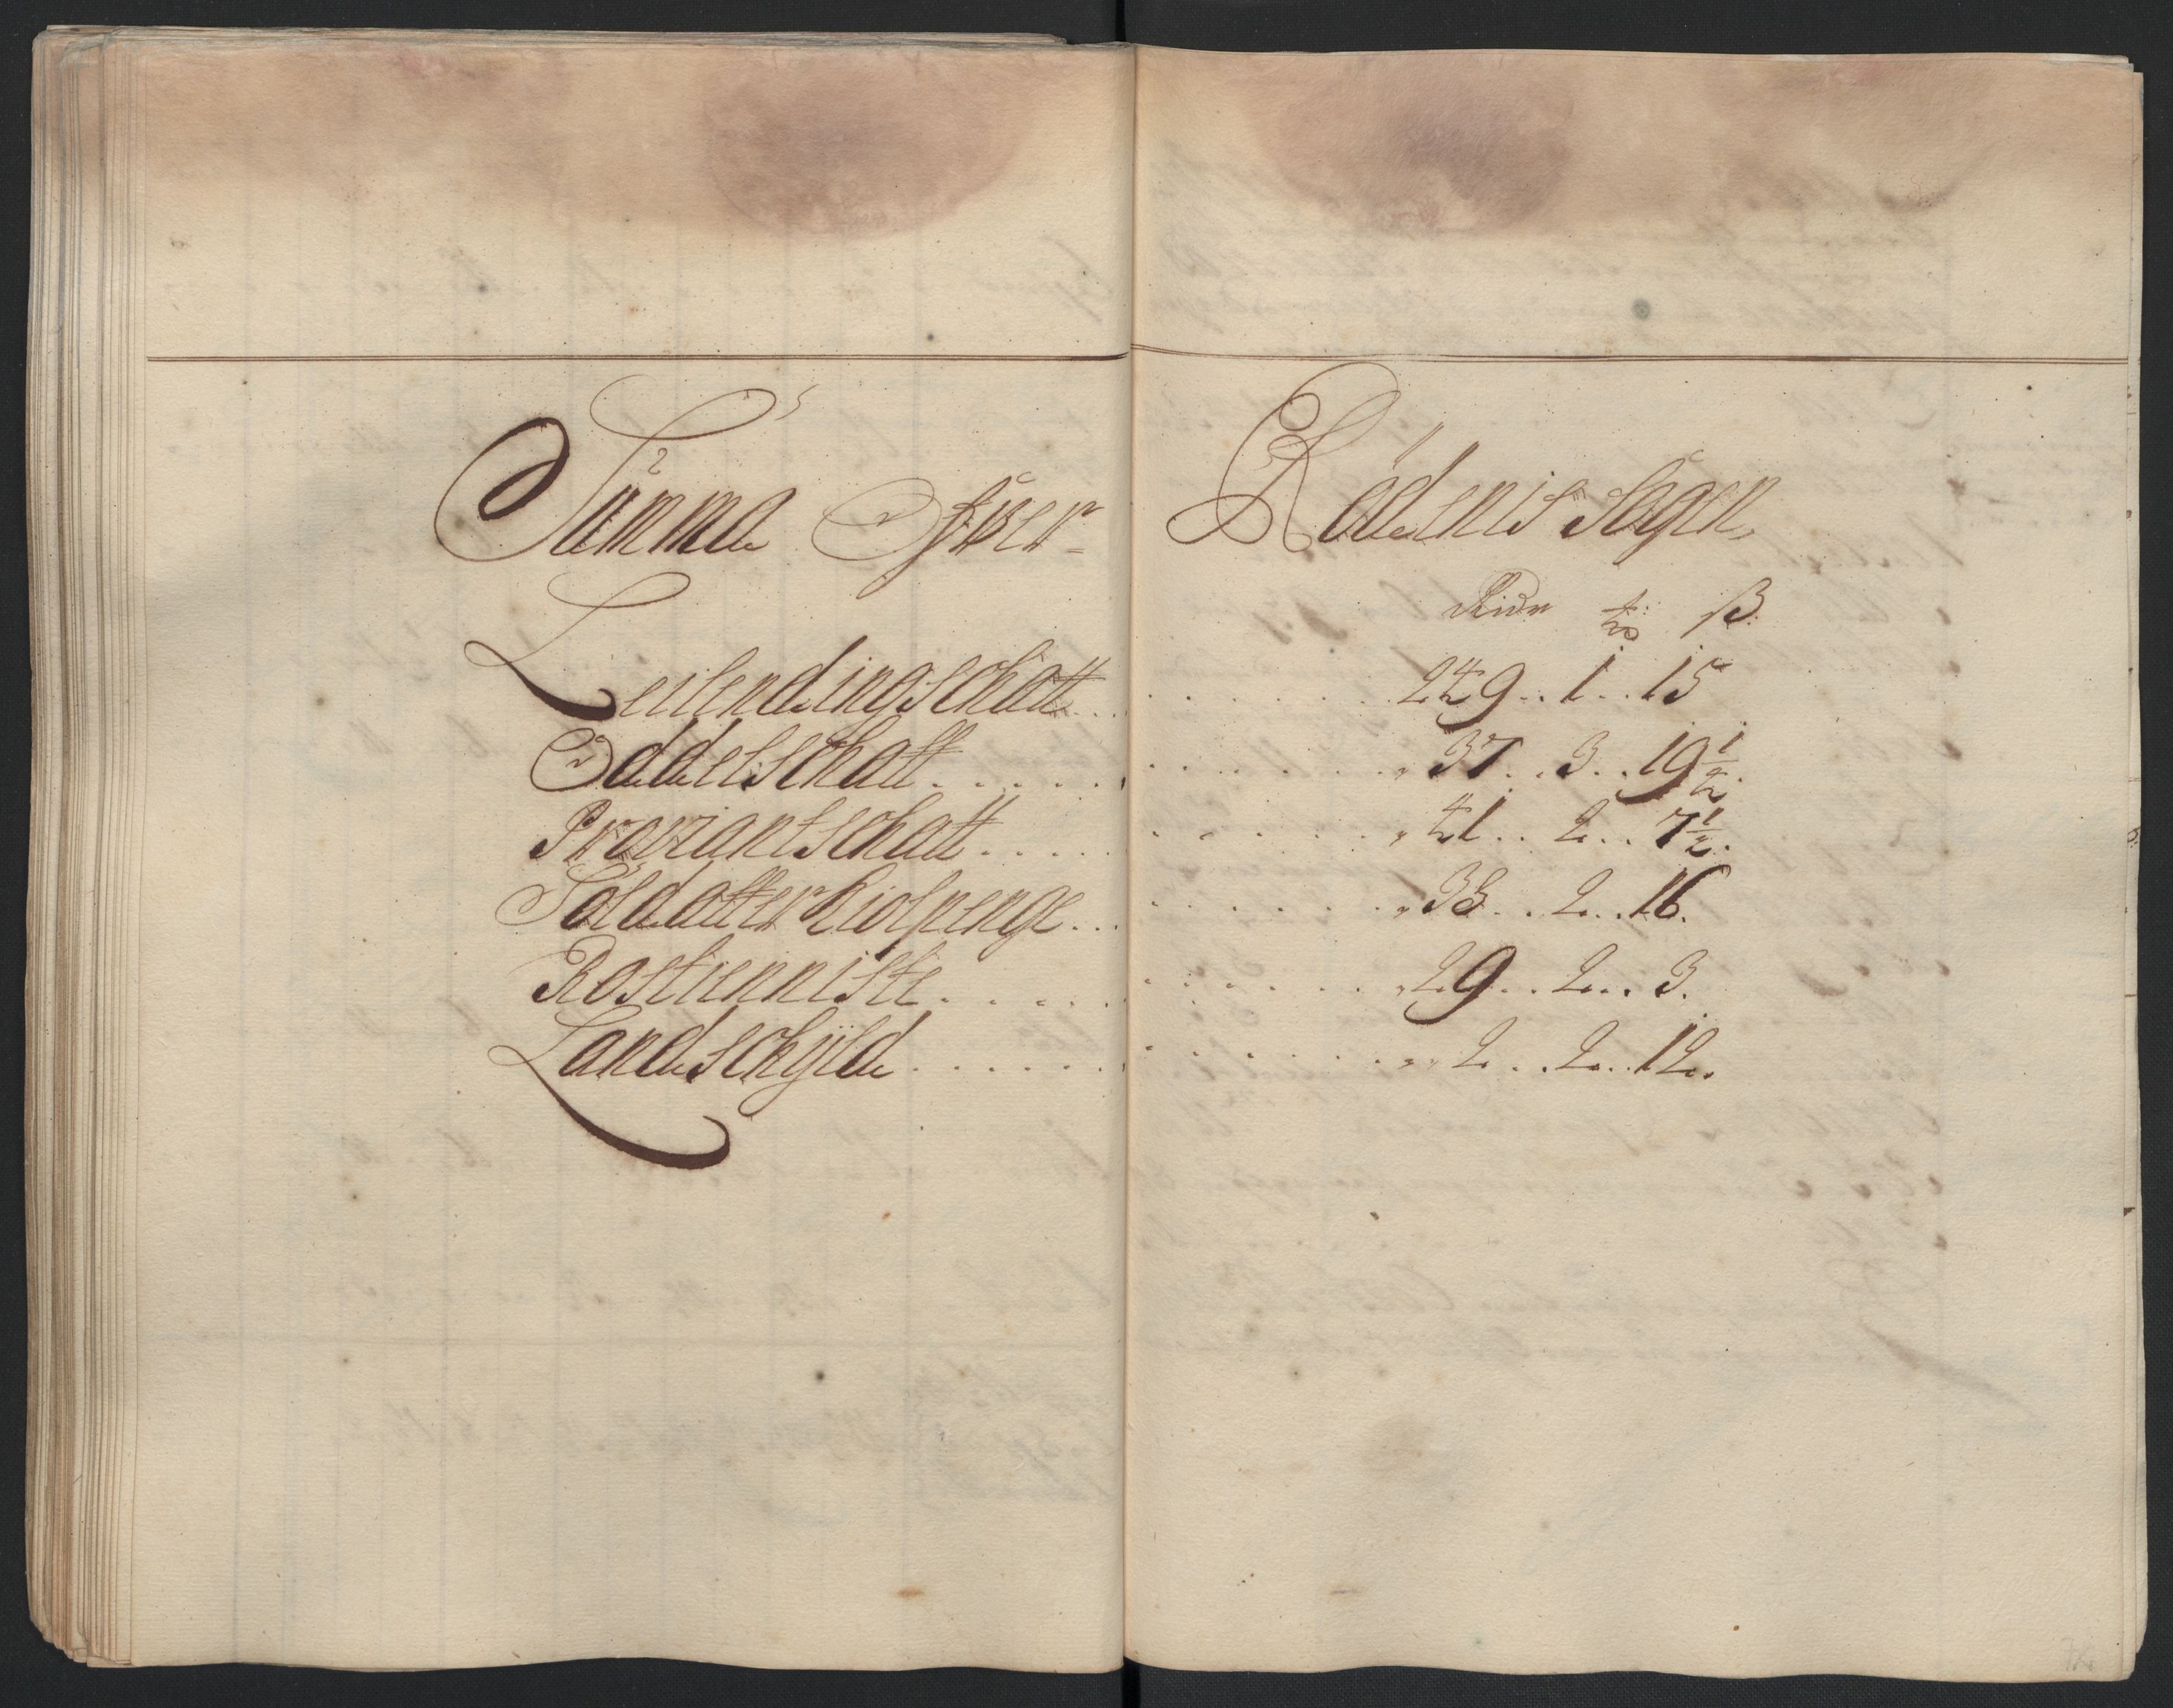 Summa Ofwer Rödenis Sogen
Rixdr ort ß
Leilendingschatt . . . . . . 249 . . 1 . . 15
Oddelschatt . . . . . . 37 . . 3 . . 19 1/2
Proviantschatt . . . . . . 41 . . 2 . . 7 1/2
Soldatterhiolpenge . . . . . . 38 . . 2 . . 16.
Rostienniste . . . . . . 29 . . 2 . . 3.
Landschÿld . . . . . . 2 . . 2 . . 12.